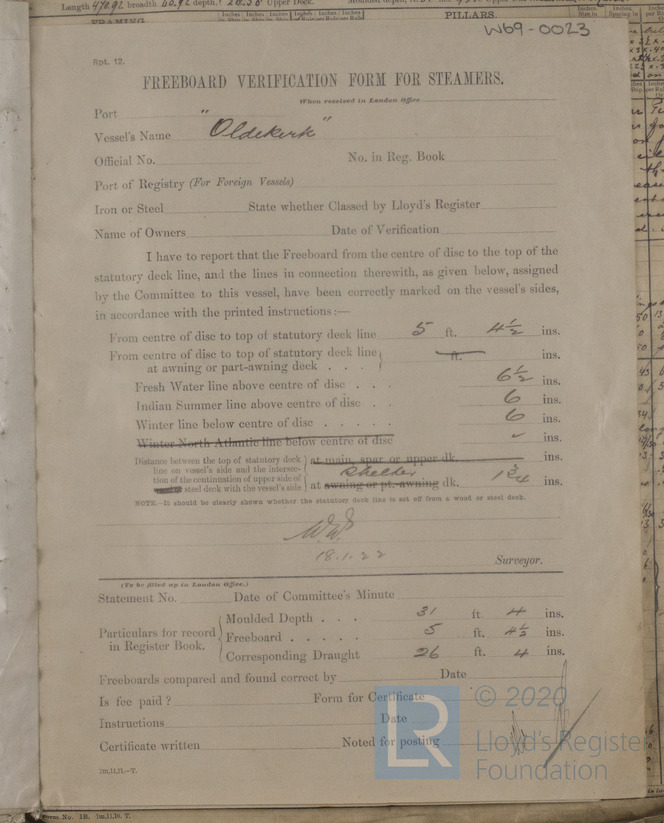 Length 470.92 breadth 60.92 depth
Upper Deck.
PILLARS.
W69-0023
Rpt. 12.
FREEBOARD VERIFICATION FORM FOR STEAMERS.
When received in London Office
Port
Vessel's Name "Oldekerk"
Official No. No. in Reg. Book
Port of Registry (For Foreign Vessels)
Iron or Steel State whether Classed by Lloyd's Register
Name of Owners Date of Verification
I have to report that the Freeboard from the centre of disc to the top of the
statutory deck line, and the lines in connection therewith, as given below, assigned
by the Committee to this vessel, have been correctly marked on the vessel's sides,
in accordance with the printed instructions:—
From centre of disc to top of statutory deck line 5 ft. 4½ ins.
From centre of disc to top of statutory deck line
at awning or part-awning deck . . . ft. ins.
Fresh Water line above centre of disc . . . 6½ ins.
Indian Summer line above centre of disc . . 6 ins.
Winter line below centre of disc . . . . . 6 ins.
Winter North Atlantic line below centre of disc ins.
Distance between the top of statutory deck
line on vessel's side and the intersec-
tion of the continuation of upper side of
steel deck with the vessel's side
at main, spar or upper dk.
Shelter
at awning or pt.-awning dk. 1¾ ins.
NOTE.—It should be clearly shown whether the statutory deck line is set off from a wood or steel deck.
18.1.22
Surveyor.
(To be filled up in London Office.)
Statement No. Date of Committee's Minute
Particulars for record
in Register Book.
Moulded Depth . . . 31 ft 4 ins.
Freeboard . . . . . 5 ft. 4½ ins.
Corresponding Draught 26 ft. 4 ins.
Freeboards compared and found correct by Date
Is fee paid? Form for Certificate
Instructions Date
Certificate written Noted for posting
1m,11,11.—T.
© 2020
LR
Lloyd's Register
Foundation
Form No. 1B. 1m,11,18. T.